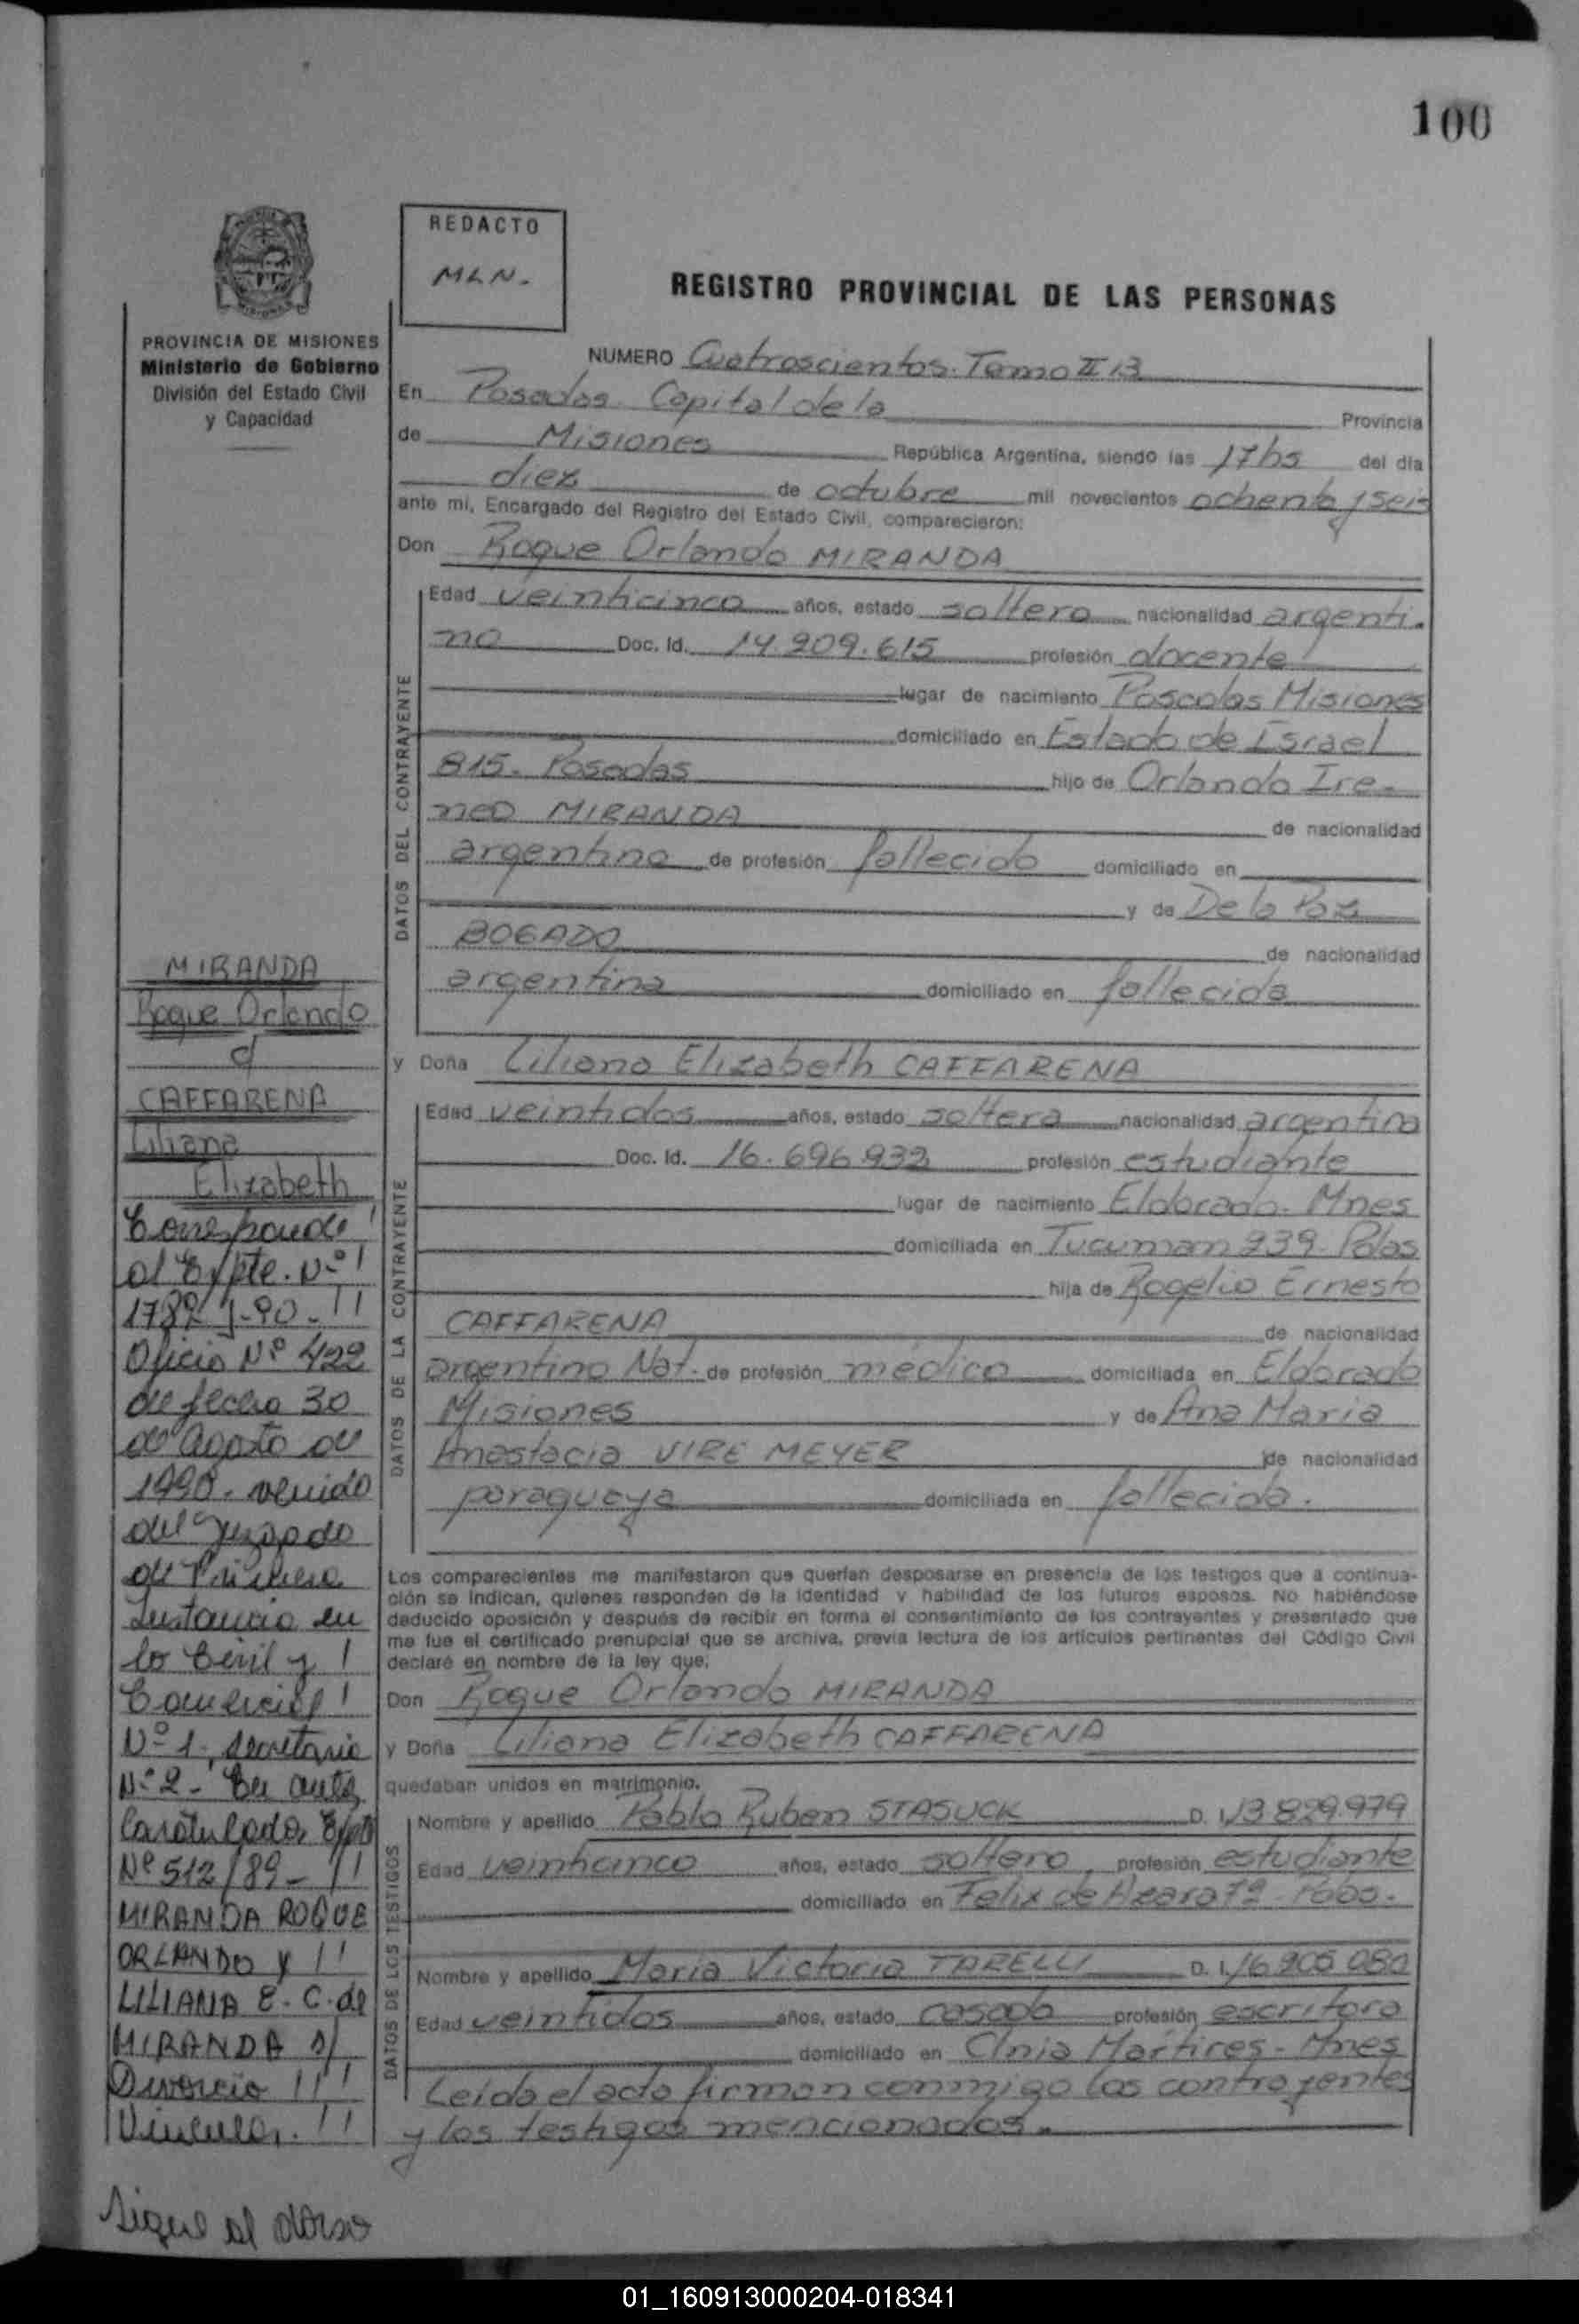 100
REDACTO
MLN.-
REGISTRO PROVINCIAL DE LAS PERSONAS
PROVINCIA DE MISIONES
Ministerio de Gobierno
División del Estado Civil
y Capacidad
NUMERO Cuatroscientos. Tomo II 13
En Posadas Capital de la Provincia
de Misiones República Argentina, siendo las 17hs del día
diez de octubre mil novecientos ochenta y seis
ante mí, Encargado del Registro del Estado Civil, comparecieron:
Don Roque Orlando MIRANDA
DATOS DEL CONTRAYENTE
Edad veinticinco años, estado soltero nacionalidad argenti-
no Doc. Id. 14.209.615 profesión docente
lugar de nacimiento Posadas Misiones
domiciliado en Estado de Israel
815. Posadas hijo de Orlando Ire-
neo MIRANDA de nacionalidad
argentina de profesión fallecido domiciliado en
y de De la Paz
BOGADO de nacionalidad
argentina domiciliado en fallecida
y Doña Liliana Elizabeth CAFFARENA
DATOS DE LA CONTRAYENTE
Edad veintidos años, estado soltera nacionalidad argentina
Doc. Id. 16.696.932 profesión estudiante
lugar de nacimiento Eldorado. Mnes
domiciliada en Tucuman 239. Pdas
hija de Rogelio Ernesto
CAFFARENA de nacionalidad
argentino Nat. de profesión médico domiciliada en Eldorado
Misiones y de Ana Maria
Anastacia VIRE MEYER de nacionalidad
paraguaya domiciliada en fallecida.
Los comparecientes me manifestaron que querían desposarse en presencia de los testigos que a continua-
ción se indican, quienes responden de la identidad y habilidad de los futuros esposos. No habiéndose
deducido oposición y después de recibir en forma el consentimiento de los contrayentes y presentado que
me fue el certificado prenupcial que se archiva, previa lectura de los artículos pertinentes del Código Civil
declaré en nombre de la ley que:
Don Roque Orlando MIRANDA
y Doña Liliana Elizabeth CAFFARENA
quedaban unidos en matrimonio.
DATOS DE LOS TESTIGOS
Nombre y apellido Pablo Ruben STASUCK D. I. 13 829.979
Edad veinticinco años, estado soltero, profesión estudiante
domiciliado en Felix de Azara 72 - Pdas.
Nombre y apellido Maria Victoria TARELLI D. I. 16 905 080
Edad veintidos años, estado casada profesión escritora
domiciliado en Clnia Mártires - Mnes
Leída el acta firman conmigo los contrayentes
y los testigos mencionados.
MIRANDA
Roque Orlando
c/
CAFFARENA
Liliana
Elizabeth
Corresponde
al Expte. Nº
1782 J-90-
Oficio Nº 422
de fecha 30
de agosto de
1990. venido
del Juzgado
de Primera
Instancia en
lo Civil y
Comercial
Nº 1, secretaria
Nº 2 - En autos
Caratulados, Expte
Nº 512/89-
MIRANDA ROQUE
ORLANDO y
LILIANA E. C. de
MIRANDA s/
Divorcio
Vincular.
Sigue al dorso
01_160913000204-018341